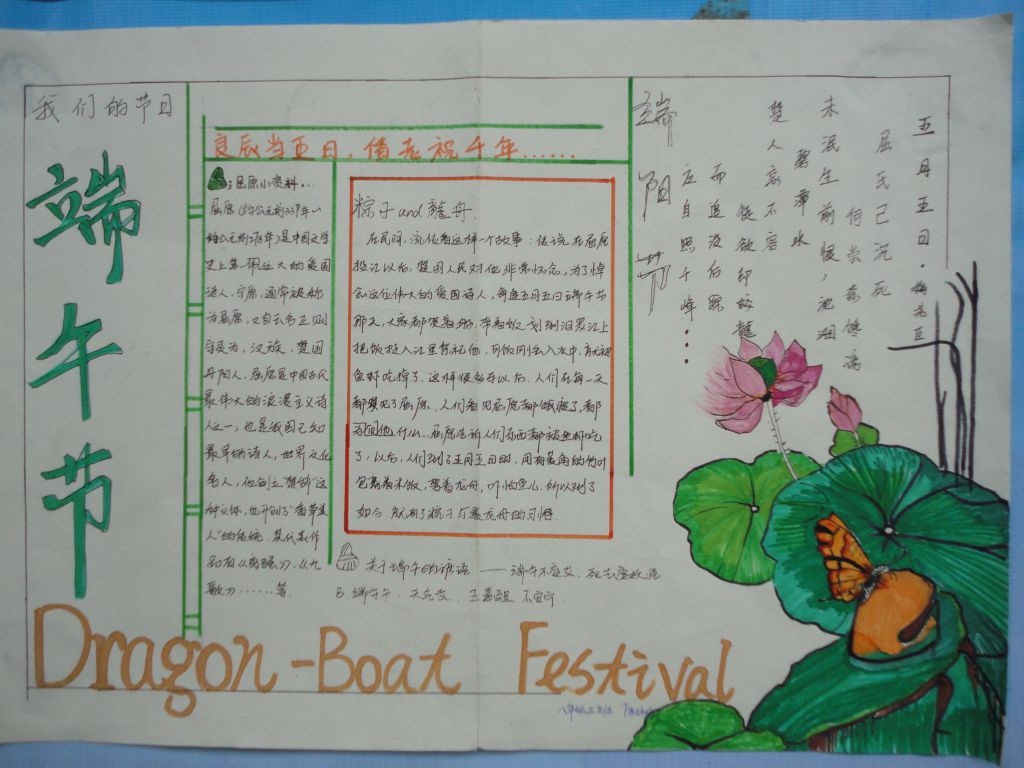 我们的节日
端午节
良辰当五日，偕老祝千年......
：屈原小资料...
屈原（约公元前339年—
约公元前278年）是中国文学
史上第一位伟大的爱国
诗人。芈原，通常被称
为屈原，又自云名正则
字灵均，汉族，楚国
丹阳人，屈原是中国古代
最伟大的浪漫主义诗
人之一，也是我国已知
最早的诗人，世界文化
名人，他创立"楚辞"这
种文体，也开创了"香草美
人"的传统。其代表作
品有《离骚》，《九
歌》......等。
粽子and龍舟.
在民间，流传着这样一个故事：传说，在屈原
投江以后，楚国人民对他非常怀念，为了悼
念这位伟大的爱国诗人，每逢五月五日端午节
那天，大家都 划到汨罗江上
把饭投入江里祭祀他，可饭 入水中，
鱼虾吃掉了，这样很多年以后，人们在每一天
都 见了屈原，人们看见屈原都饿瘦了，都
问他什么，屈原告诉人们东西都被鱼虾吃
了，以后，人们到了五月五日时，用有菱角的竹叶
包裹着米饭，驾着龙舟，吓怕鱼儿，所以到了
如今，就有了粽子与赛龙舟的习惯.
关于端午的谚语 —— 端午不 ，死去
端午午，天气 ，五 醒 不安宁
端阳节
五月五日·梅尧臣
屈氏已沉死
何尝奈谗谄
未泯生前恨，
碧潭水
楚人哀不容
徒欲却蛟龍
而追没后踪
应自照千峰....
Dragon-Boat Festival